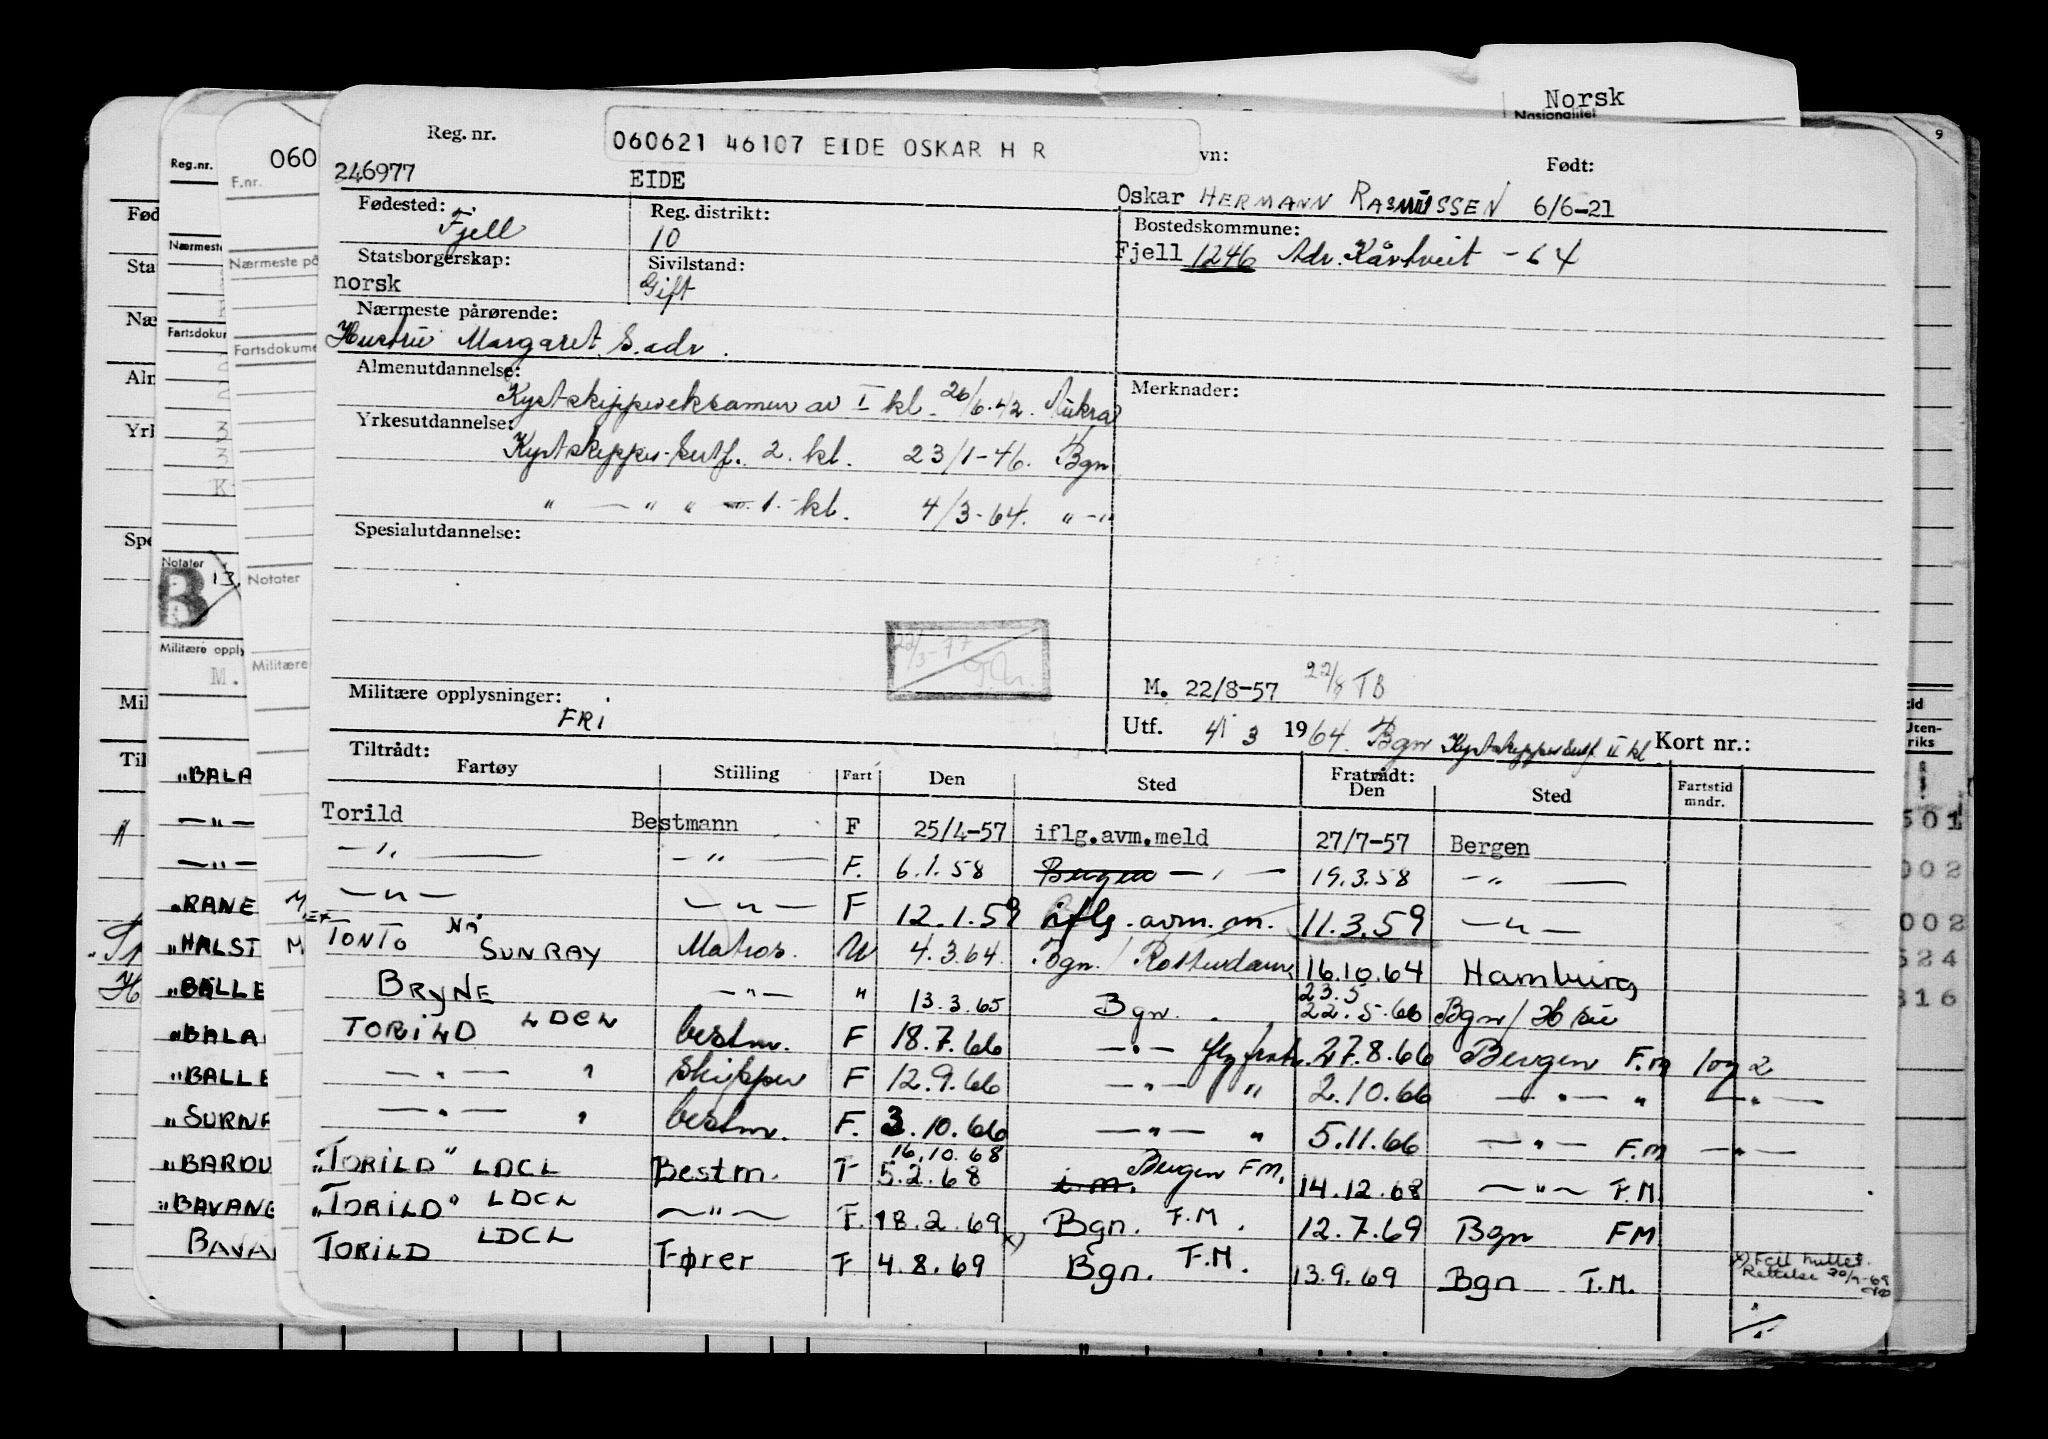 Norsk
Nasjonalitet
9
Reg. nr. 060621 46107 EIDE OSKAR H R vn: Født:
246977 EIDE Oskar HERMANN RASMUSSEN 6/6-21
Fødested: Fjell Reg. distrikt: 10 Bostedskommune: Fjell 1246 Adr. Kårtveit - 64
Statsborgerskap: norsk Sivilstand: Gift
Nærmeste pårørende:
Hustru Margaret S. adr.
Almenutdannelse: Merknader:
Kystskippereksamen av I kl. 26/6.42. Aukra
Yrkesutdannelse:
Kystskipper-sertf. 2. kl. 23/1-46. Bgn
" — " " — 1. kl. 4/3-64. " - "
Spesialutdannelse:
22/3-77
Militære opplysninger: FRI
M. 22/8-57 22/8 TB
Utf. 4/3 1964. Bgn Kystskippersertf. II kl. Kort nr.:
Tiltrådt: Fratrådt:
Fartøy Stilling Fart Den Sted Den Sted Fartstid mndr.
Torild Bestmann F 25/4-57 iflg.avm.meld 27/7-57 Bergen
— " — — " — F. 6.1.58 Bergen — " — 19.3.58 — " —
— " — — " — F 12.1.59 iflg. avm. m. 11.3.59 — " —
TONTO NÅ SUNRAY Matros. U 4.3.64. Bgn. / Rotterdam 16.10.64 Hamburg
BRYNE — " — " 13.3.65 Bgn. 23.5 22.5.66 Bgn /
TORILD LDCL bestm. F 18.7.66 — " — flg fratr. 27.8.66 Bergen F.M 1 og 2
— " — " Skipper F 12.9.66 — " — " 2.10.66 — " — " — " —
— " — " bestm. F. 3.10.66 — " — " 5.11.66 — " — F.M — " —
"TORILD" LDCL Bestm. F 16.10.68 5.2.68 i.m. Bergen FM. 14.12.68 — " — F.M.
"TORILD" LDCL — " — F. 18.2.69 x) Bgn. F.M. 12.7.69 Bgn FM
TORILD LDCL Fører F 4.8.69 Bgn. F.M. 13.9.69 Bgn F.M.
x) Feil hullet. Rettelse 30/9-69
Reg.nr.
F.nr. 060
Nærmeste
Nærmeste på
Fartsdokum
Fartsdokume
Notater
Notater
B 13.
Militære opply
Militære
M.
Fød
Sta
Næ
Alm
Yrk
Spe
Mil
Til
"BALA
— " —
— " —
"RANE M
"HALST M
"BALLE
"BALA
"BALLE
"SURNA
"BARDU
"BAVANG
BAVA
Uten-
riks
501
002
002
524
816